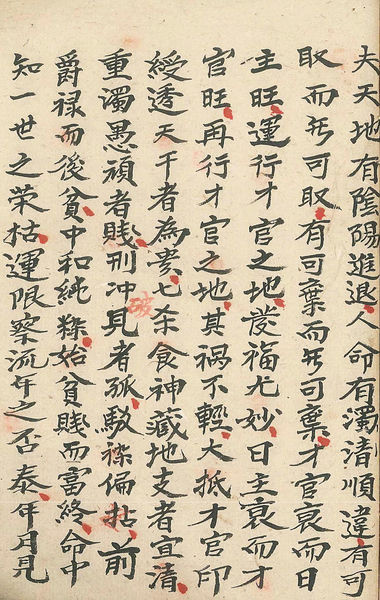 夫天地有陰陽進退人命有濁清順違有可
取而無可取有可棄而無可棄才官衰而日
主旺運行才官之地發福尤妙日主衰而才
官旺再行才官之地其禍不輕大抵才官印
綬透天干者為貴七杀食神藏地支者宜清
重濁愚頑者賤刑冲見者孤駁襍偏拈前
爵禄而後貧中和純粹始貧賤而富終命中
知一世之荣枯運限察流年之否泰年月見
破